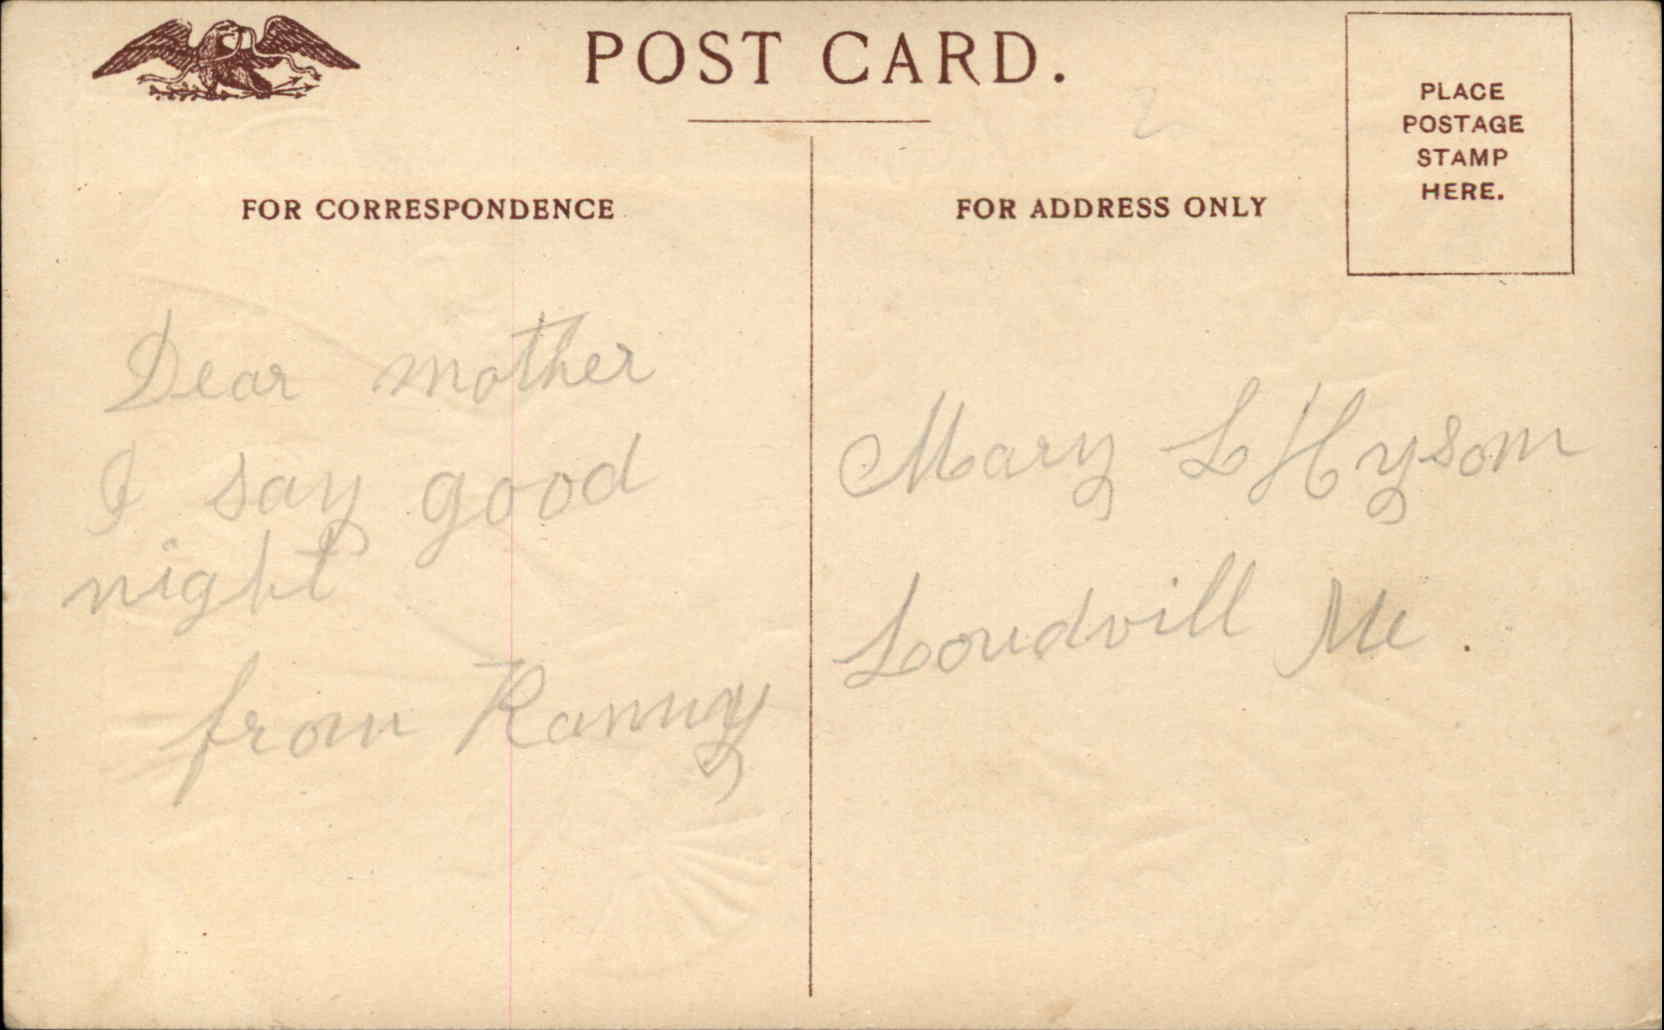 POST CARD.
PLACE
POSTAGE
STAMP
HERE.
FOR CORRESPONDENCE
FOR ADDRESS ONLY
Dear mother
I say good
night
from Ranny
Mary L Hysom
Loudvill Me.